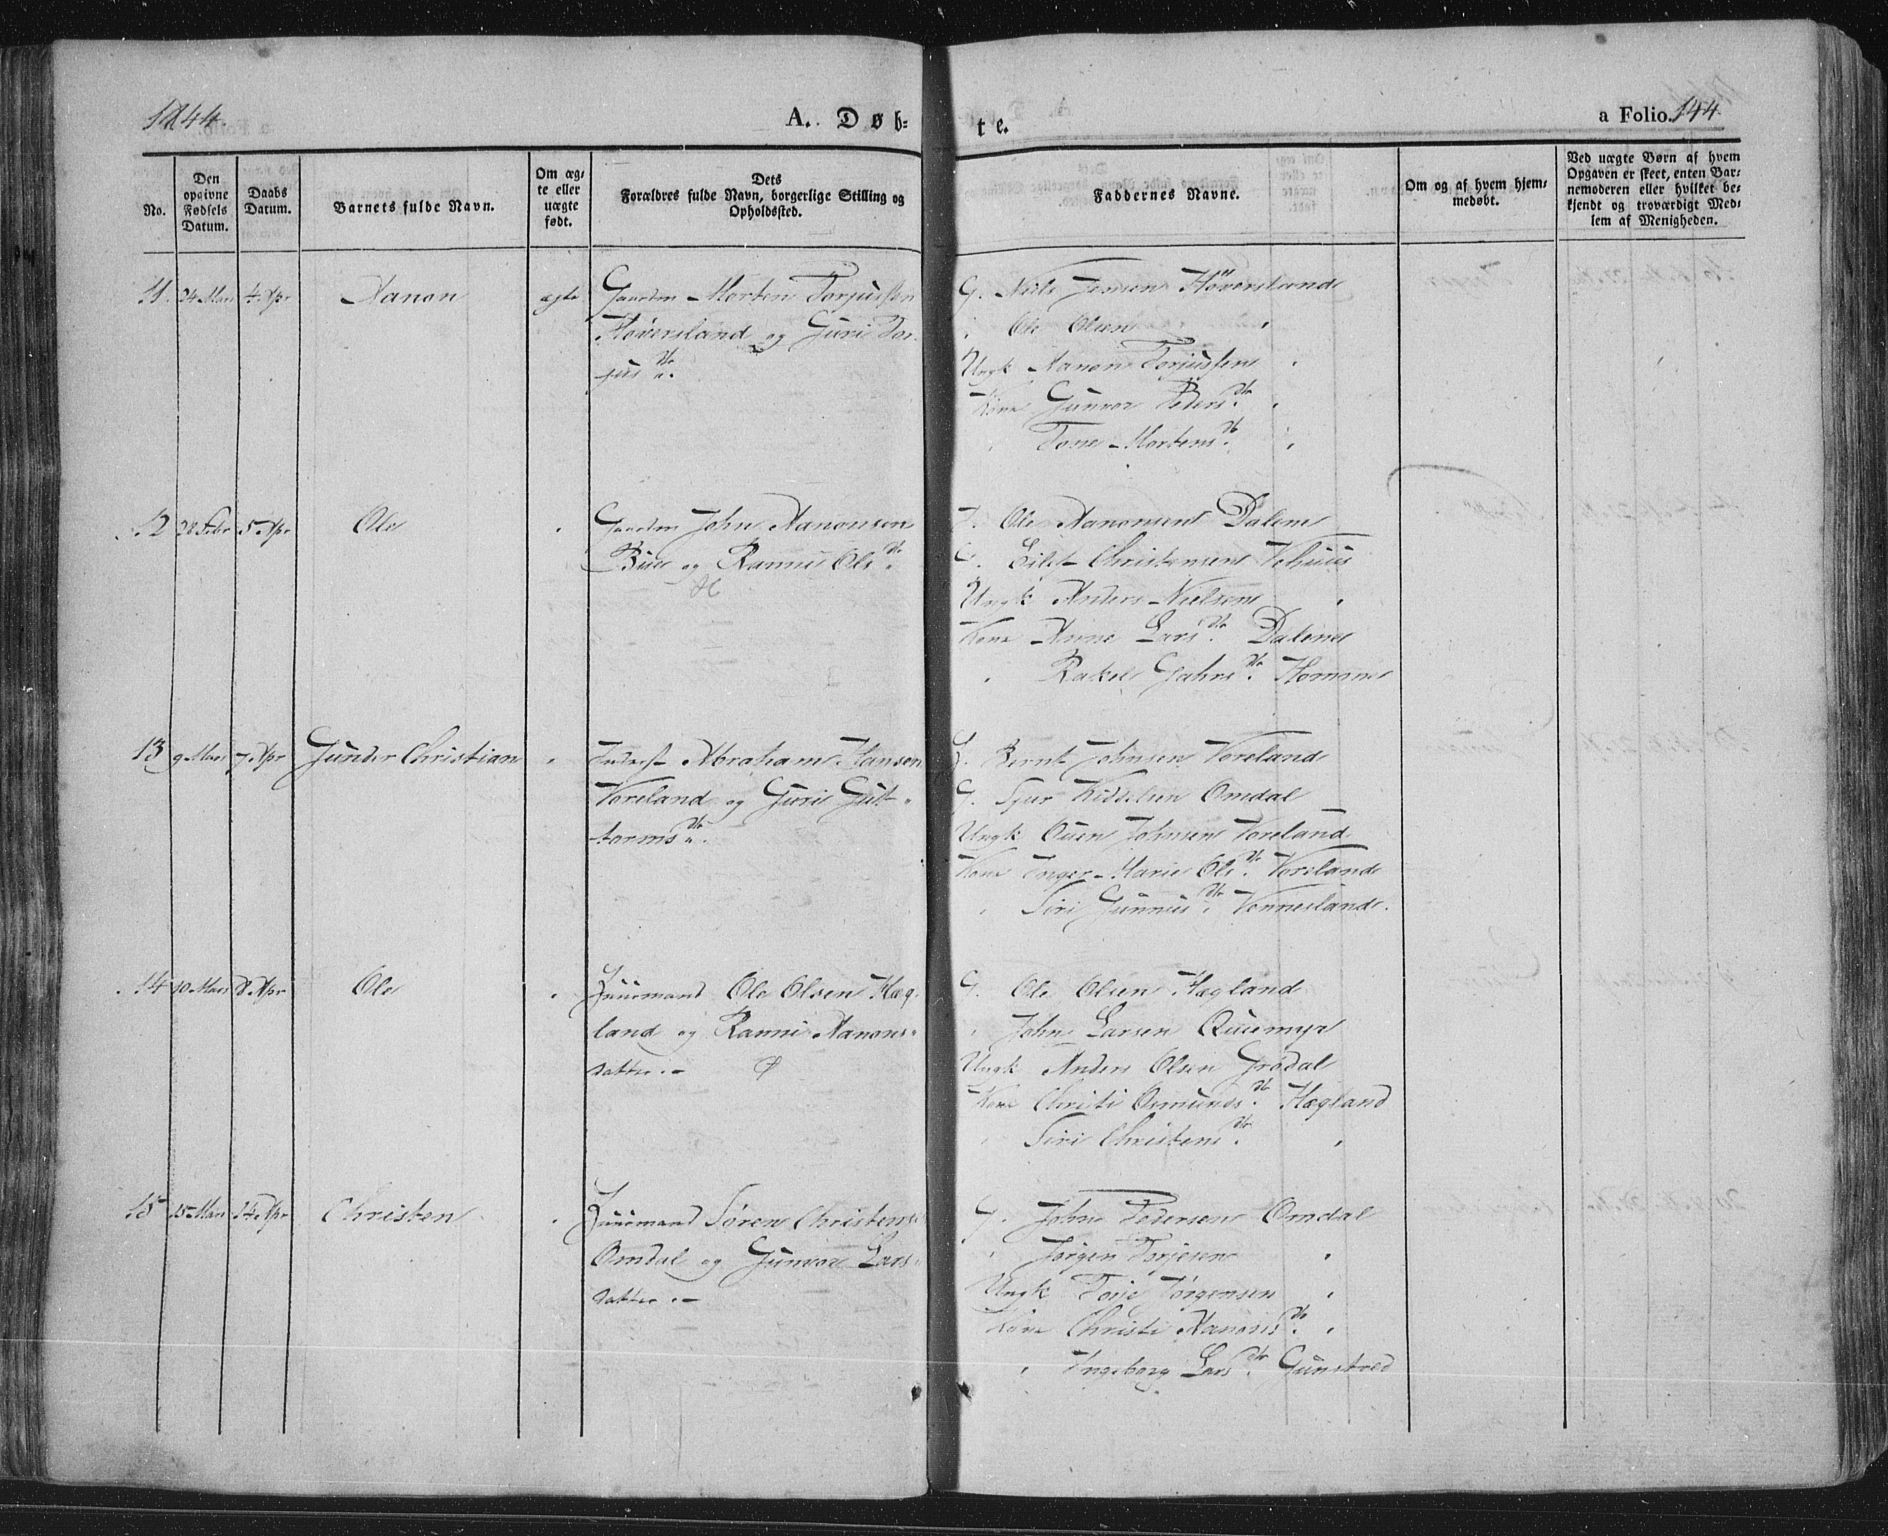 1844.
A. Døb-
te.
a Folio 144
No.
Den opgivne Fødsels Datum.
Daabs Datum.
Barnets fulde Navn.
Om ægte eller uægte født.
Dets Forældres fulde Navn, borgerlige Stilling og Opholdssted.
Faddernes Navne.
Om og af hvem hjemmedøbt.
Ved uægte Børn af hvem Opgaven er skeet, enten Barnemoderen eller hvilket bekjendt og troværdigt Medlem af Menigheden.
11. 24 Mars 4 Apr Aanon ægte
Gaardm Morten Torjussen
Høversland og Guri Tor-
jus Dr.
G. Niels Jensen Høversland
" Ole Olsen "
Ungk Aanon Torjussen "
Kone Gunvor Peders Dr. "
" Tone Mortens Dr. "
12 28 Febr 5 Apr Ole "
Gaardm John Aanonsen
Bue og Ranni Ols Dr.
Ole Aanonsen Dalen
G. Eilef Christensen Vehuus
Ungk Anders Nielsen "
Kone Anne Lars Dr. Dalene
" Rakel Gjahrs Dr. Homme
13 9 Mars 7 Apr Gunder Christian "
Inderst Abraham Hansen
Voreland og Guri Gut-
torms Dr.
G. Bernt Johnsen Voreland
G. Sjur Kittelsen Omdal
Ungk Ouen Johnsen Voreland
Kone Inger Marie Ols Dr. Voreland
" Siri Gunnus Dr. Vennesland.
14 10 Mars 8 Apr Ole "
Huusmand Ole Olsen Hæg-
land og Ranni Aanons-
datter.-
G. Ole Olsen Hægland
" John Larsen Quiemyr
Ungk Anders Olsen Grødal
Kone Christi Osmunds Dr. Hægland
" Siri Christens Dr. "
15 15 Mars 14 Apr Christen "
Huusmand Søren Christens.
Omdal og Gunvor Lars-
datter.-
G. John Pedersen Omdal
" Jørgen Torjesen "
Ungk Torje Jørgensen "
Kone Christi Aanons Dr. "
" Ingeborg Lars Dr. Gunstved